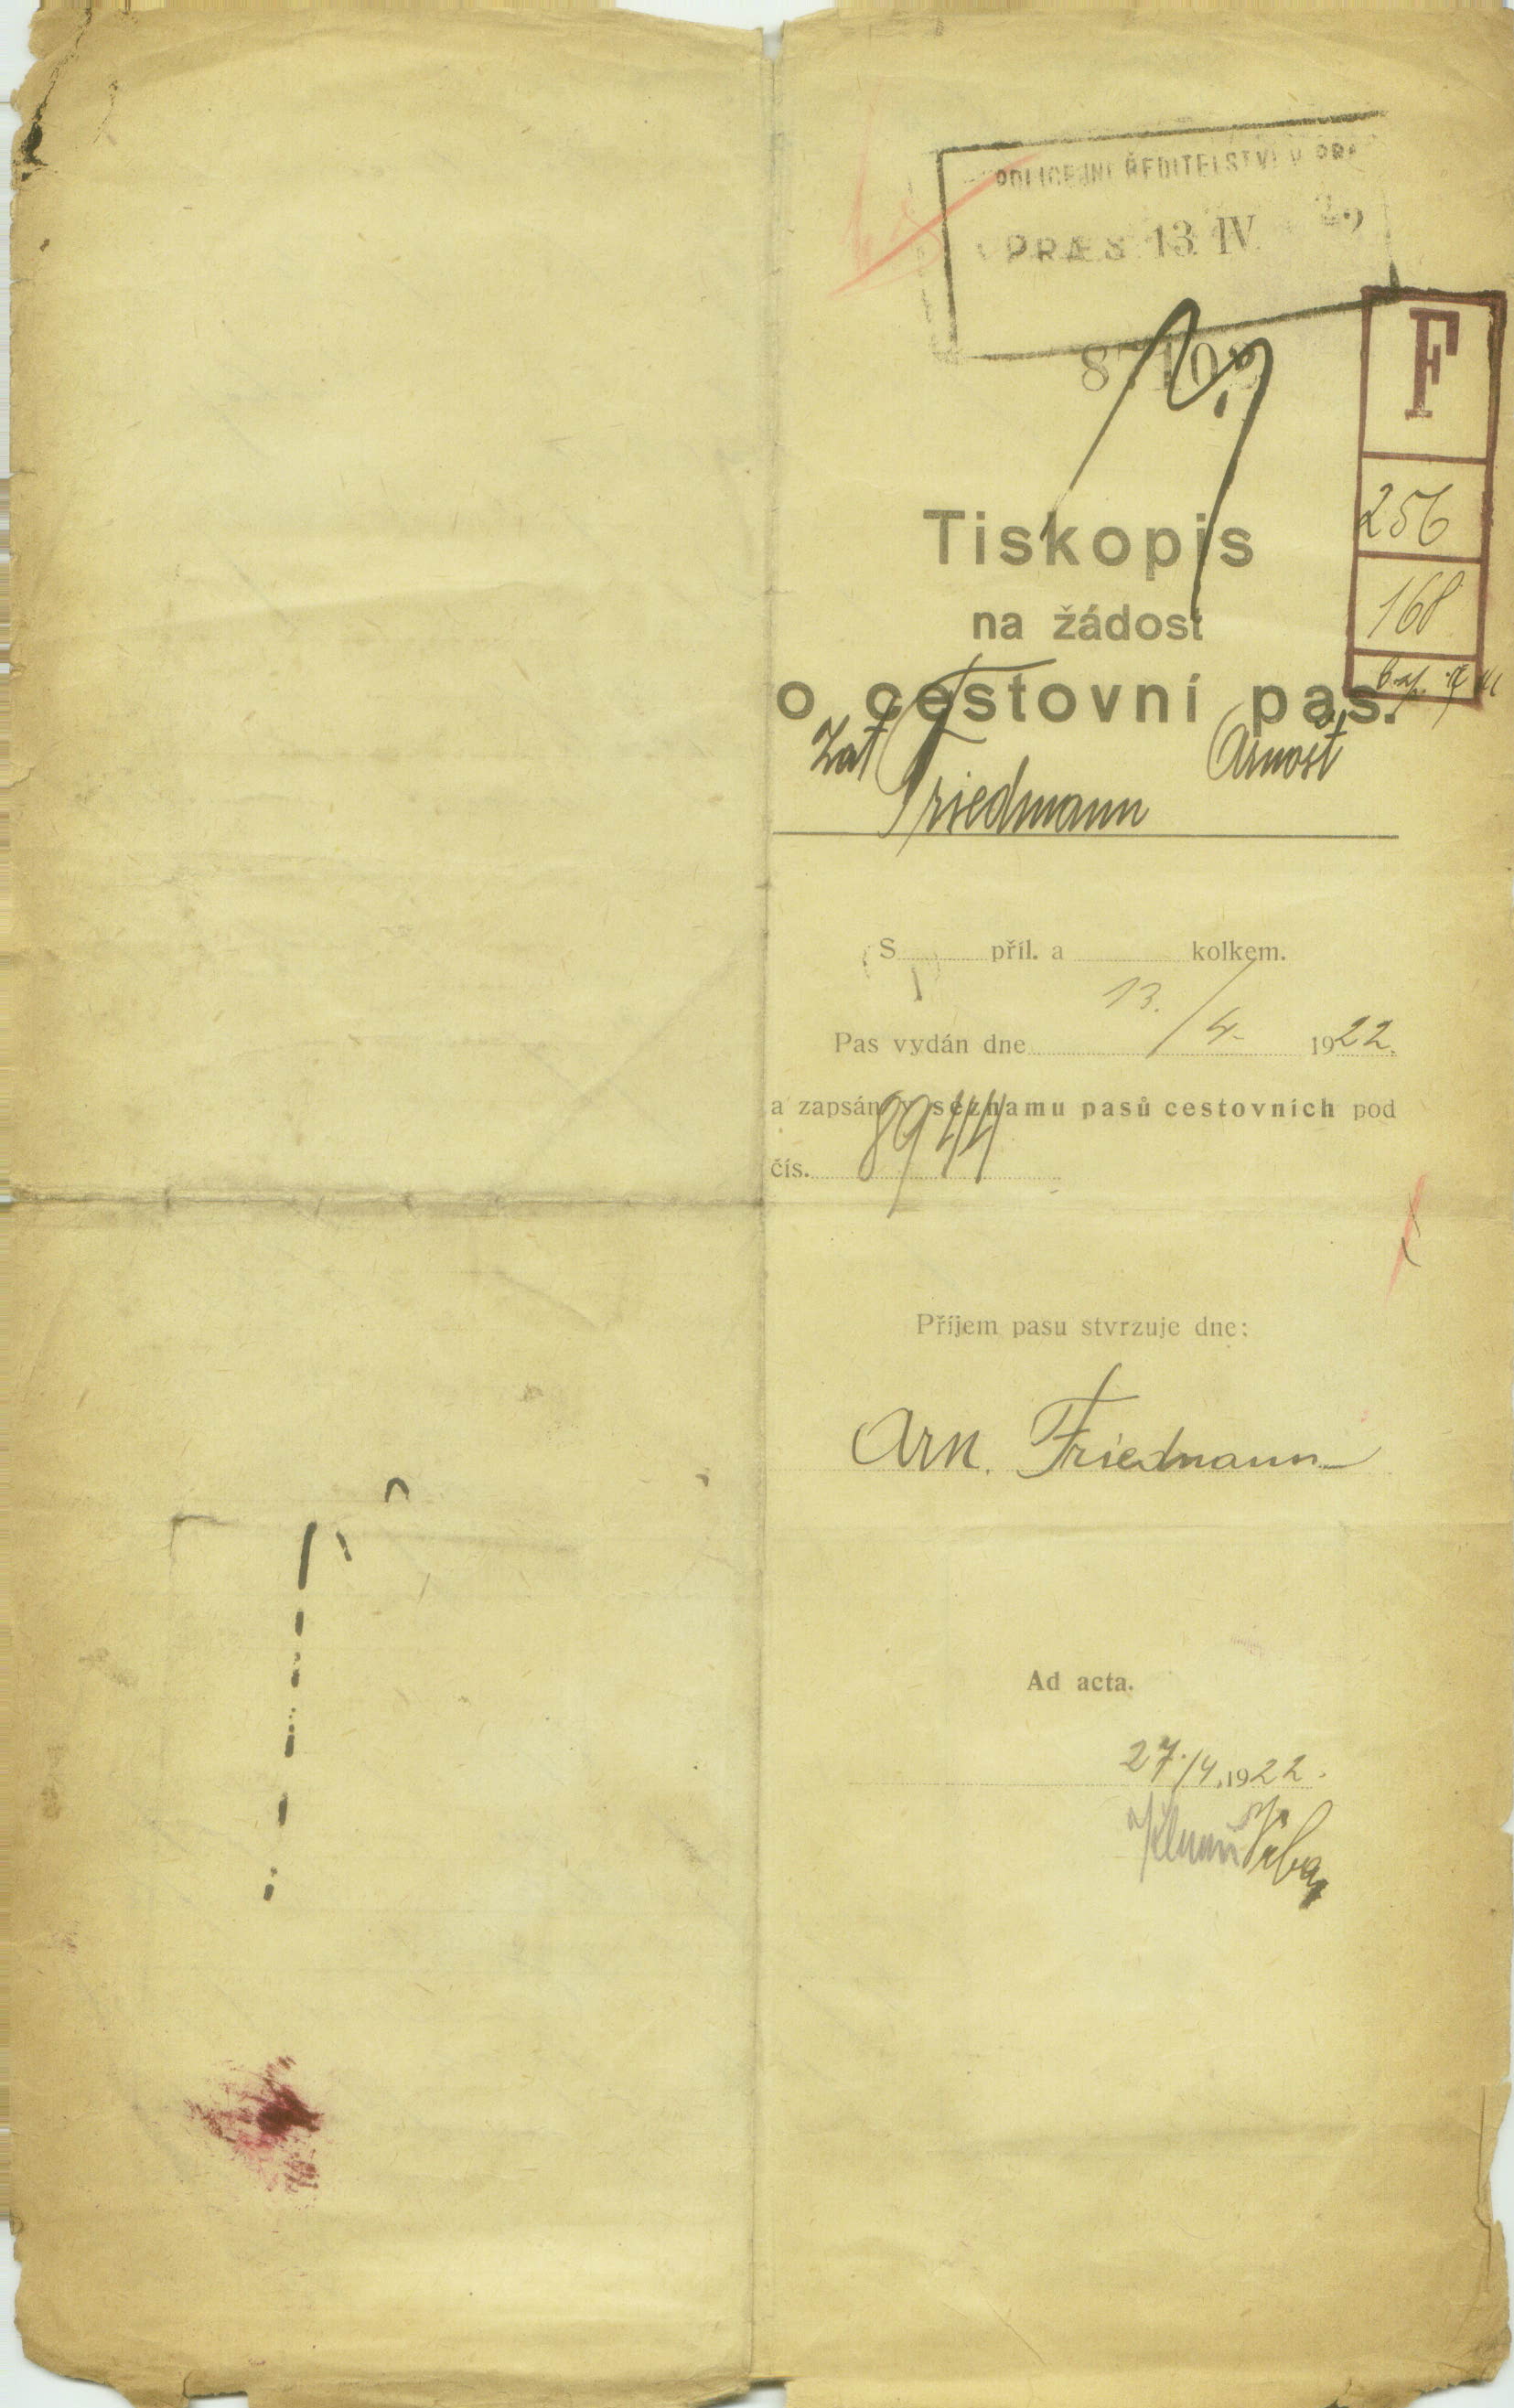 POLICEJNÍ ŘEDITELSTVÍ V
PRÆS 13 IV
F
256
168
Tiskopis
na žádost
o cestovní pas.
Arnošt
Friedmann
S příl. a kolkem.
Pas vydán dne 13./4. 1922.
a zapsán v seznamu pasů cestovních pod
čís. 8944
Příjem pasu stvrzuje dne:
Arn. Friedmann
Ad acta.
27./4. 1922.